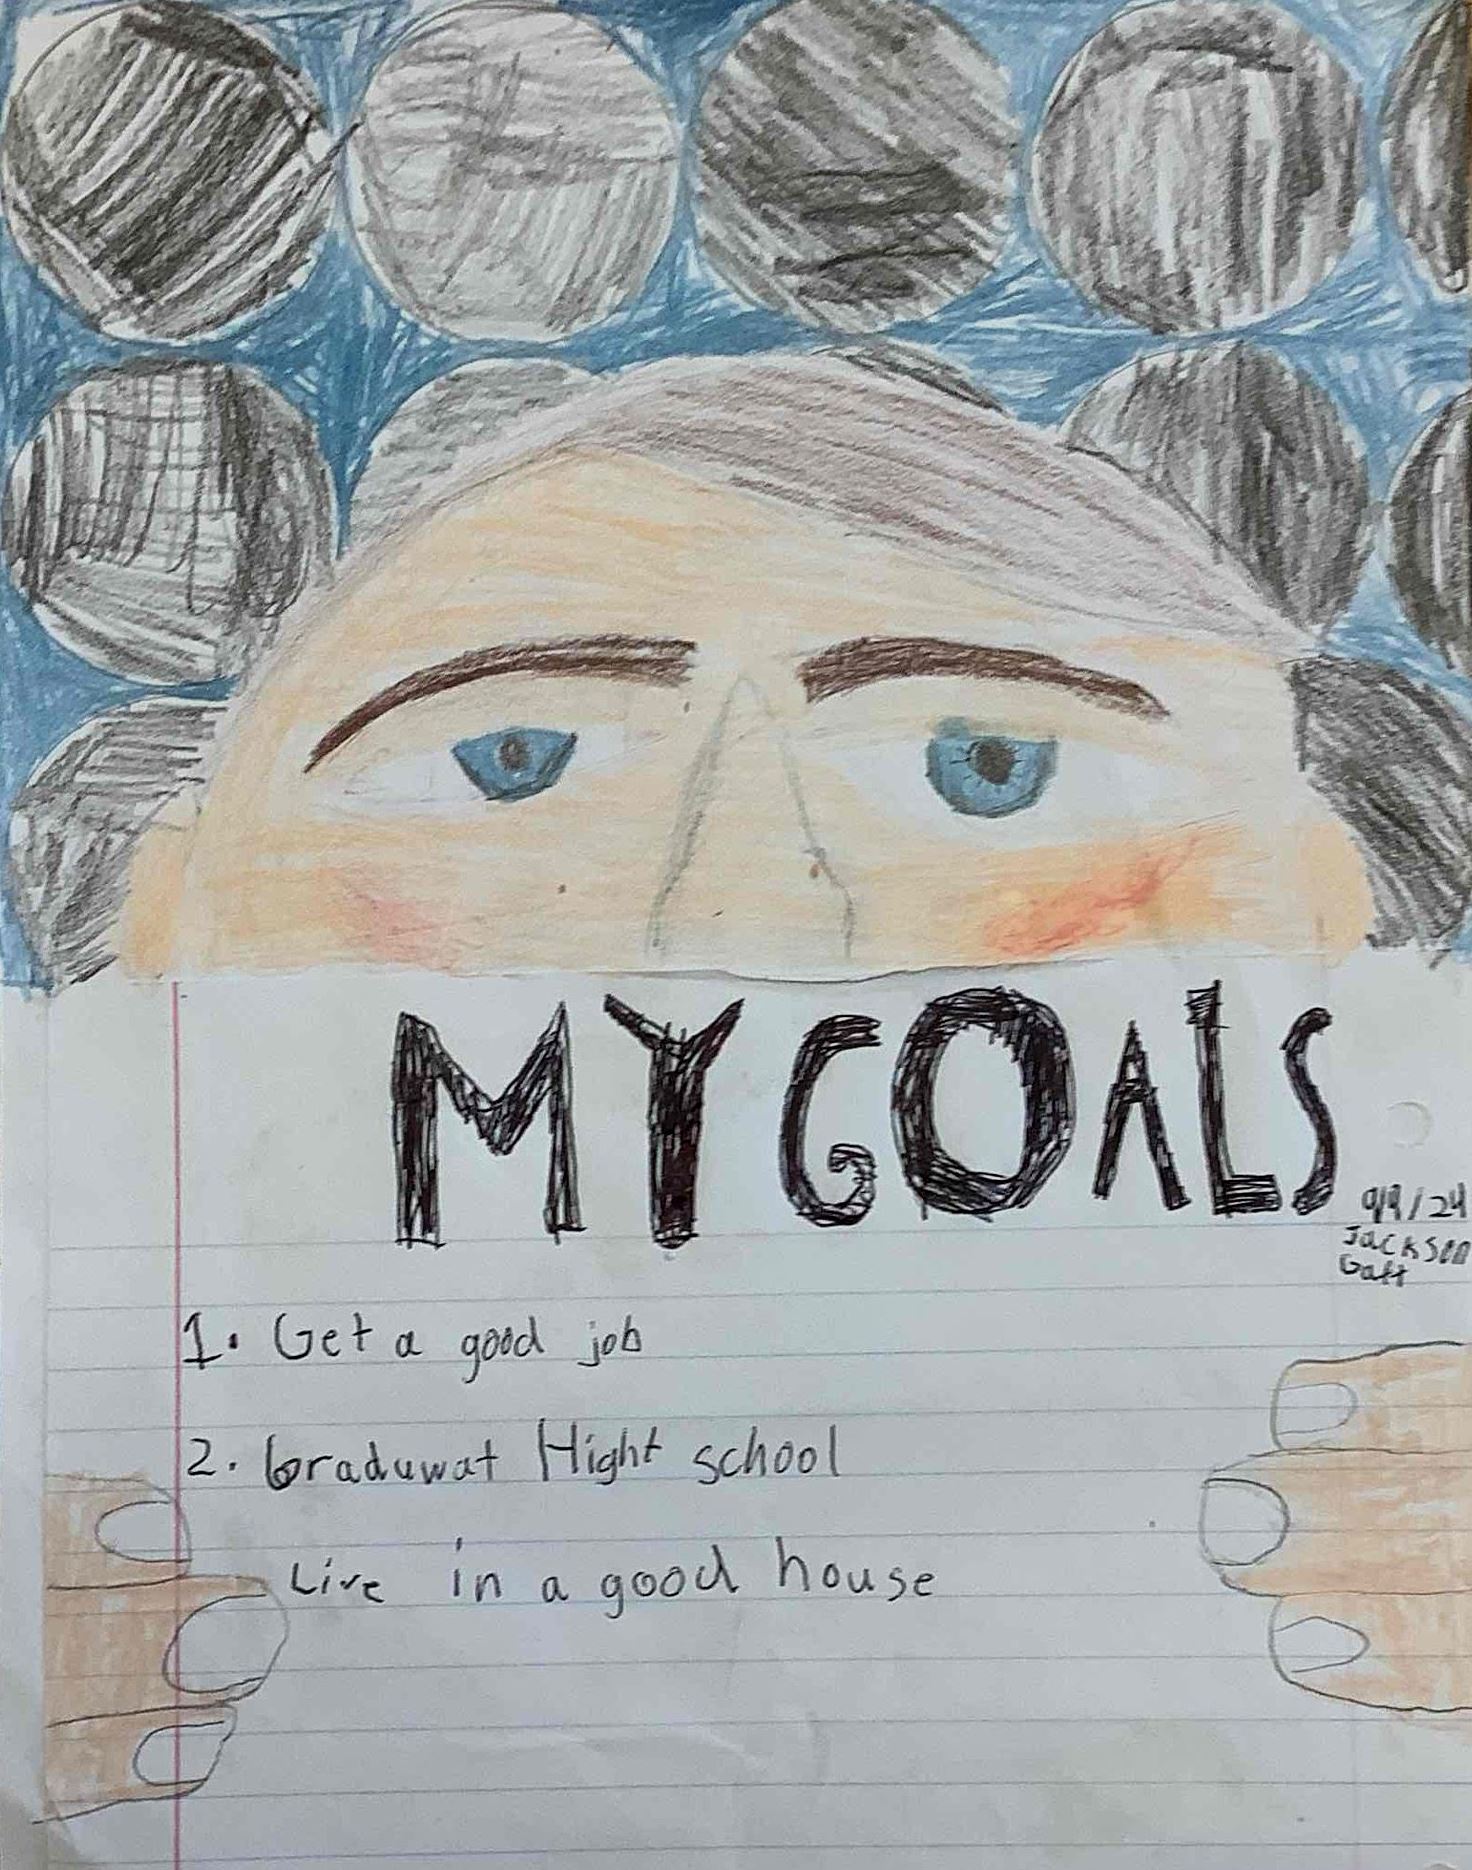 MY GOALS
9/9/24
Jackson
Gatt
1. Get a good job
2. Graduwat Hight school
Live in a good house